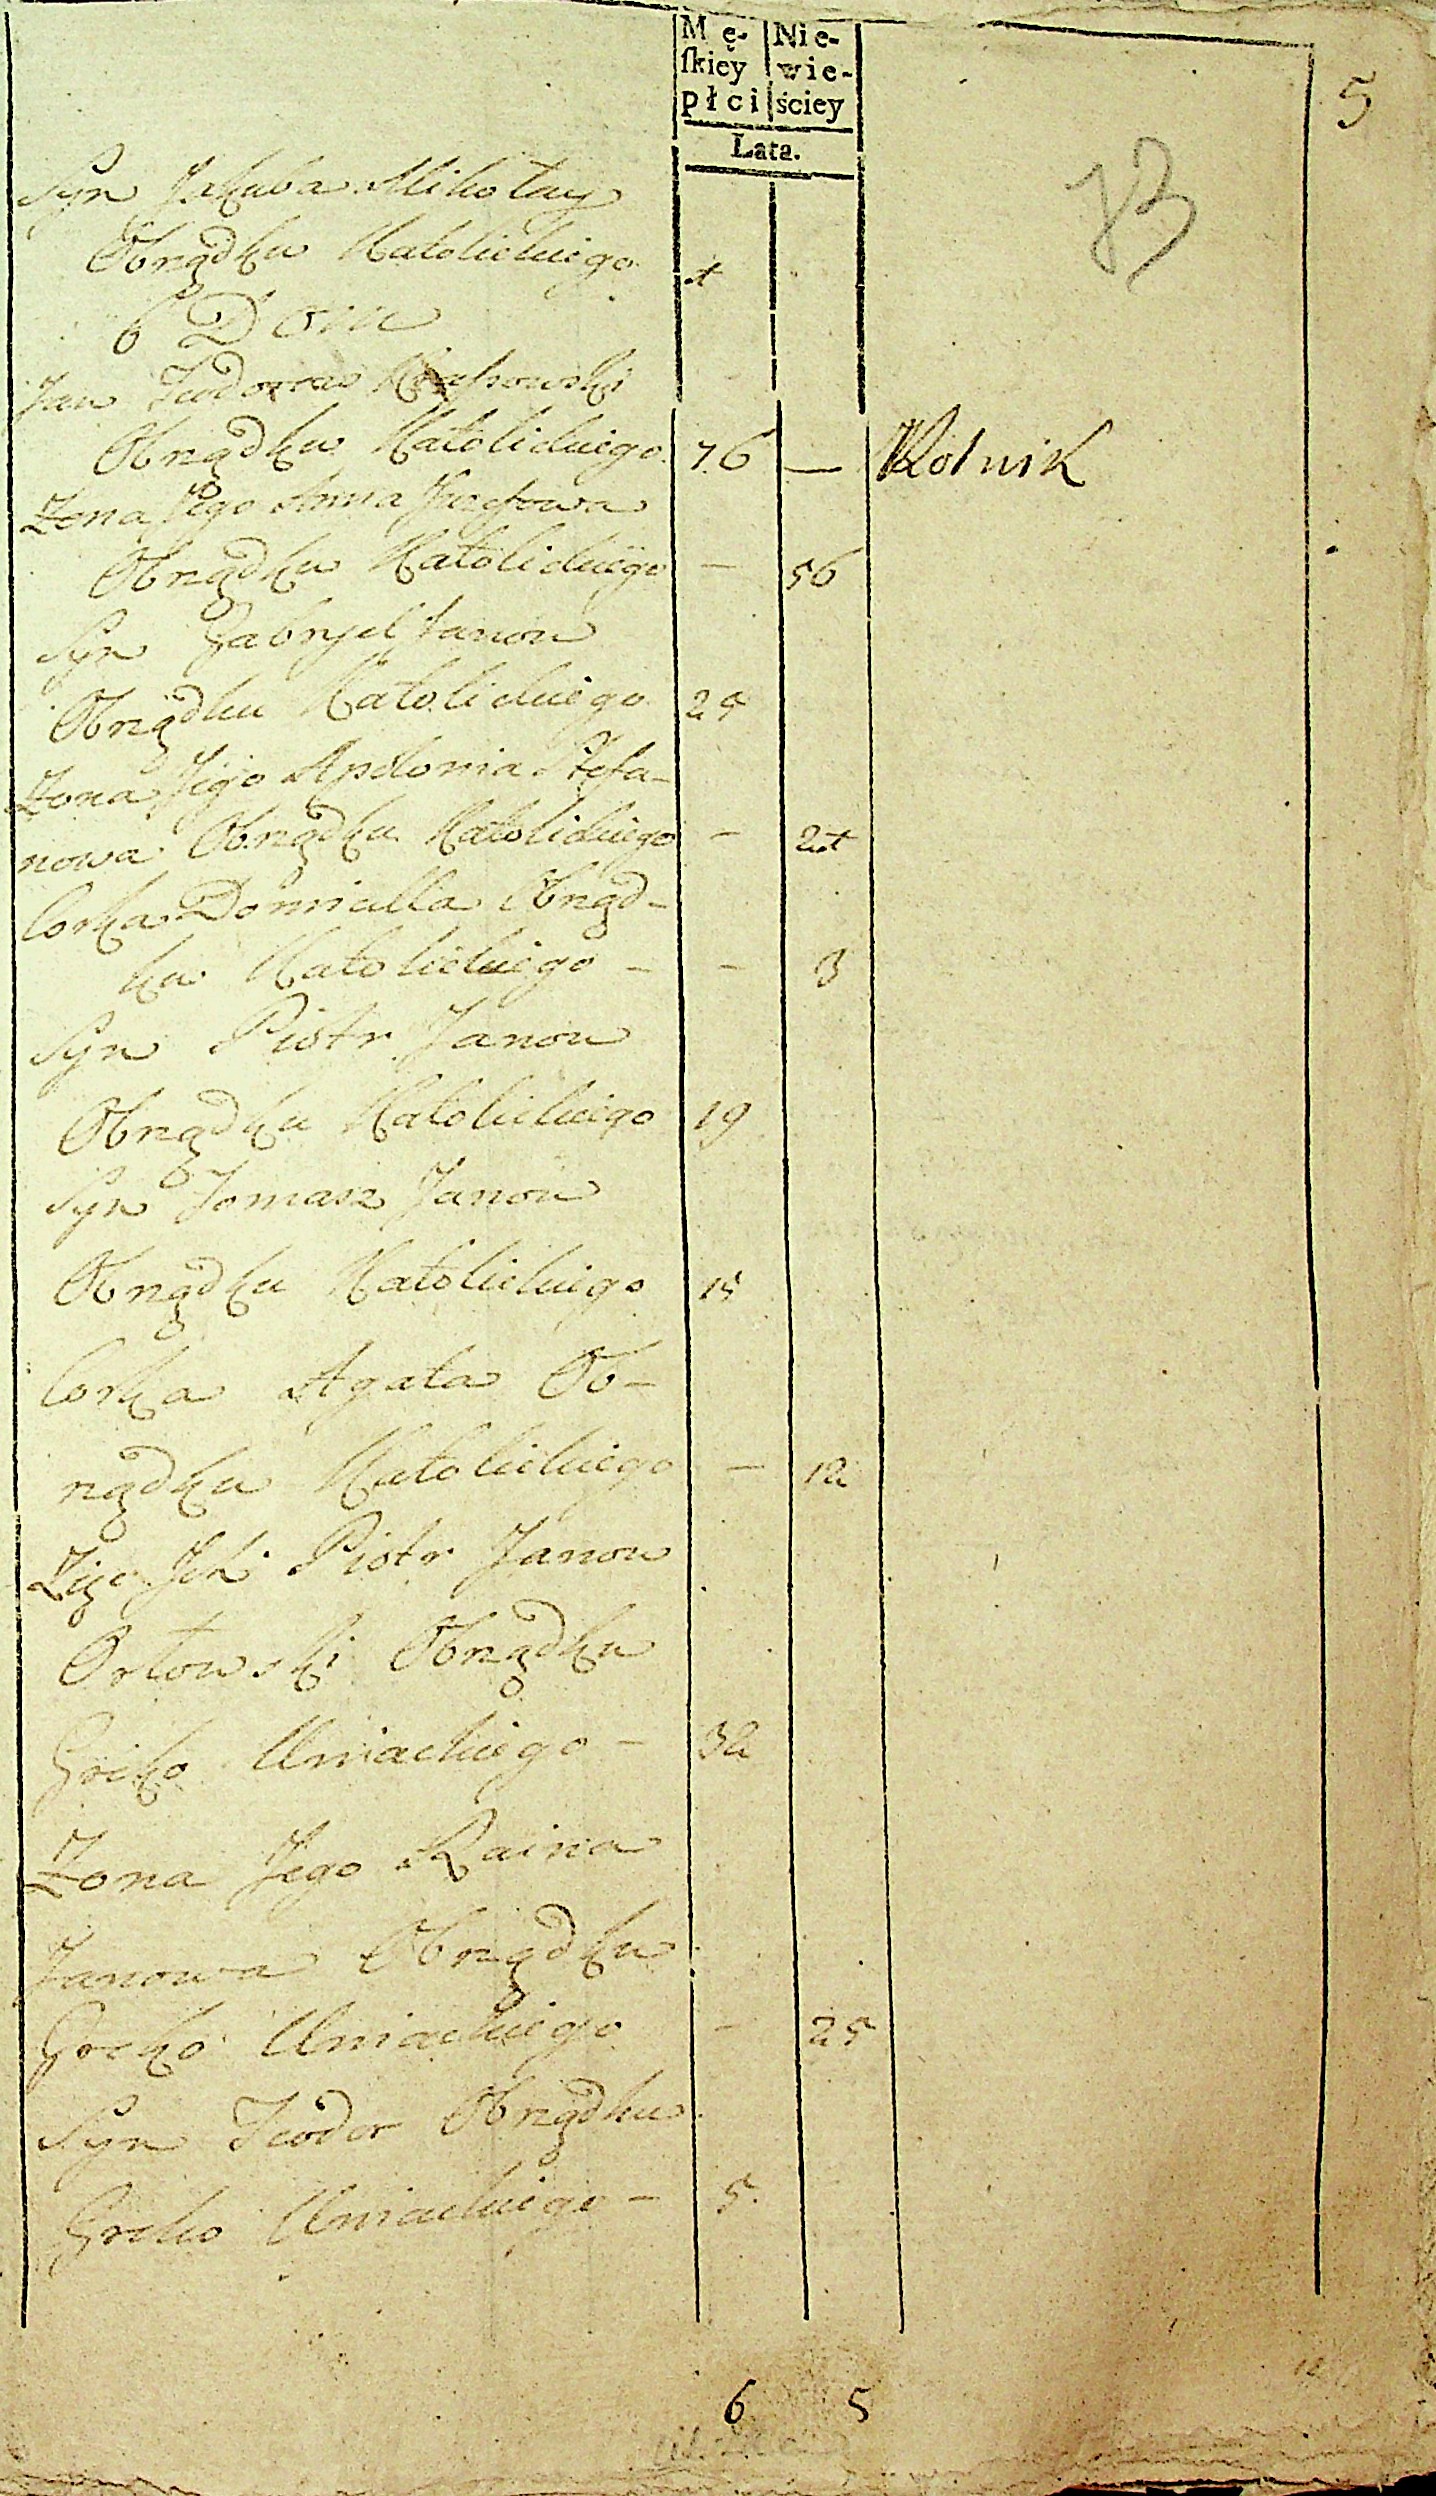 Mę- Nie-
ſkiey wie-
płci ściey
Lata.
5
73
Syn Jakuba Mikołay
Obrządku Katolickiego 1
6 Dom
Jan Teodorów
Obrządku Katolickiego 76 — Rolnik
Zona Jego Anna Juzefowa
Obrządku Katolickiego — 56
Syn Gabryel Janow
Obrządku Katolickiego 25
Zona Jego Apolonia Stefa-
nowa Obrządku Katolickiego — 21
Corka Domicella Obrząd-
ku Katolickiego — — 3
Syn Piotr Janow
Obrządku Katolickiego 19
Syn Tomasz Janow
Obrządku Katolickiego 15
Corka Agata Ob-
rządku Katolickiego — 12
Zięc Ich Piotr Janow
Orłowski Obrządku
Greko Uniackiego — 32
Zona Jego Raina
Janowa Obrządku
Greko Uniackiego — 25
Syn Teodor Obrządku
Greko Uniackiego — 5
6 5